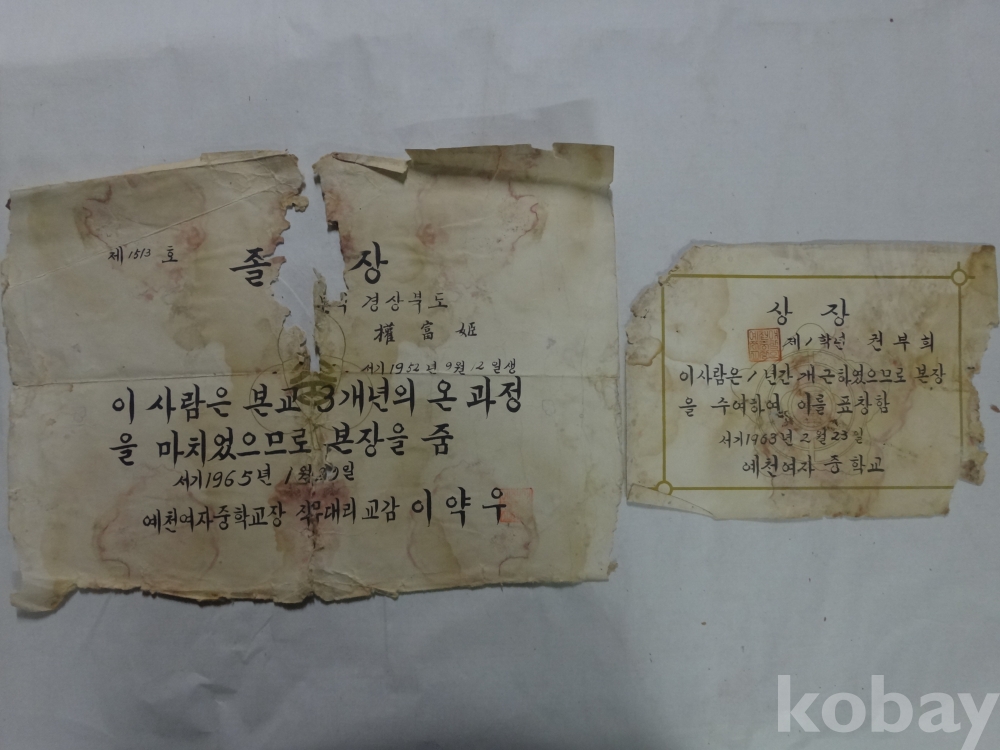 제 1513 호
졸 장
본적 경상북도
權富姬
서기 1952년 9월 12일생
이 사람은 본교 3개년의 온 과정
을 마치었으므로 본장을 줌
서기 1965년 1월 일
예천여자중학교장 직무대리 교감 이약우
상장
제1학년 권부희
이사람은 1년간 개근하였으므로 본장
을 수여하여 이를 표창함
서기 1963년 2월 23일
예천여자중학교
kobay